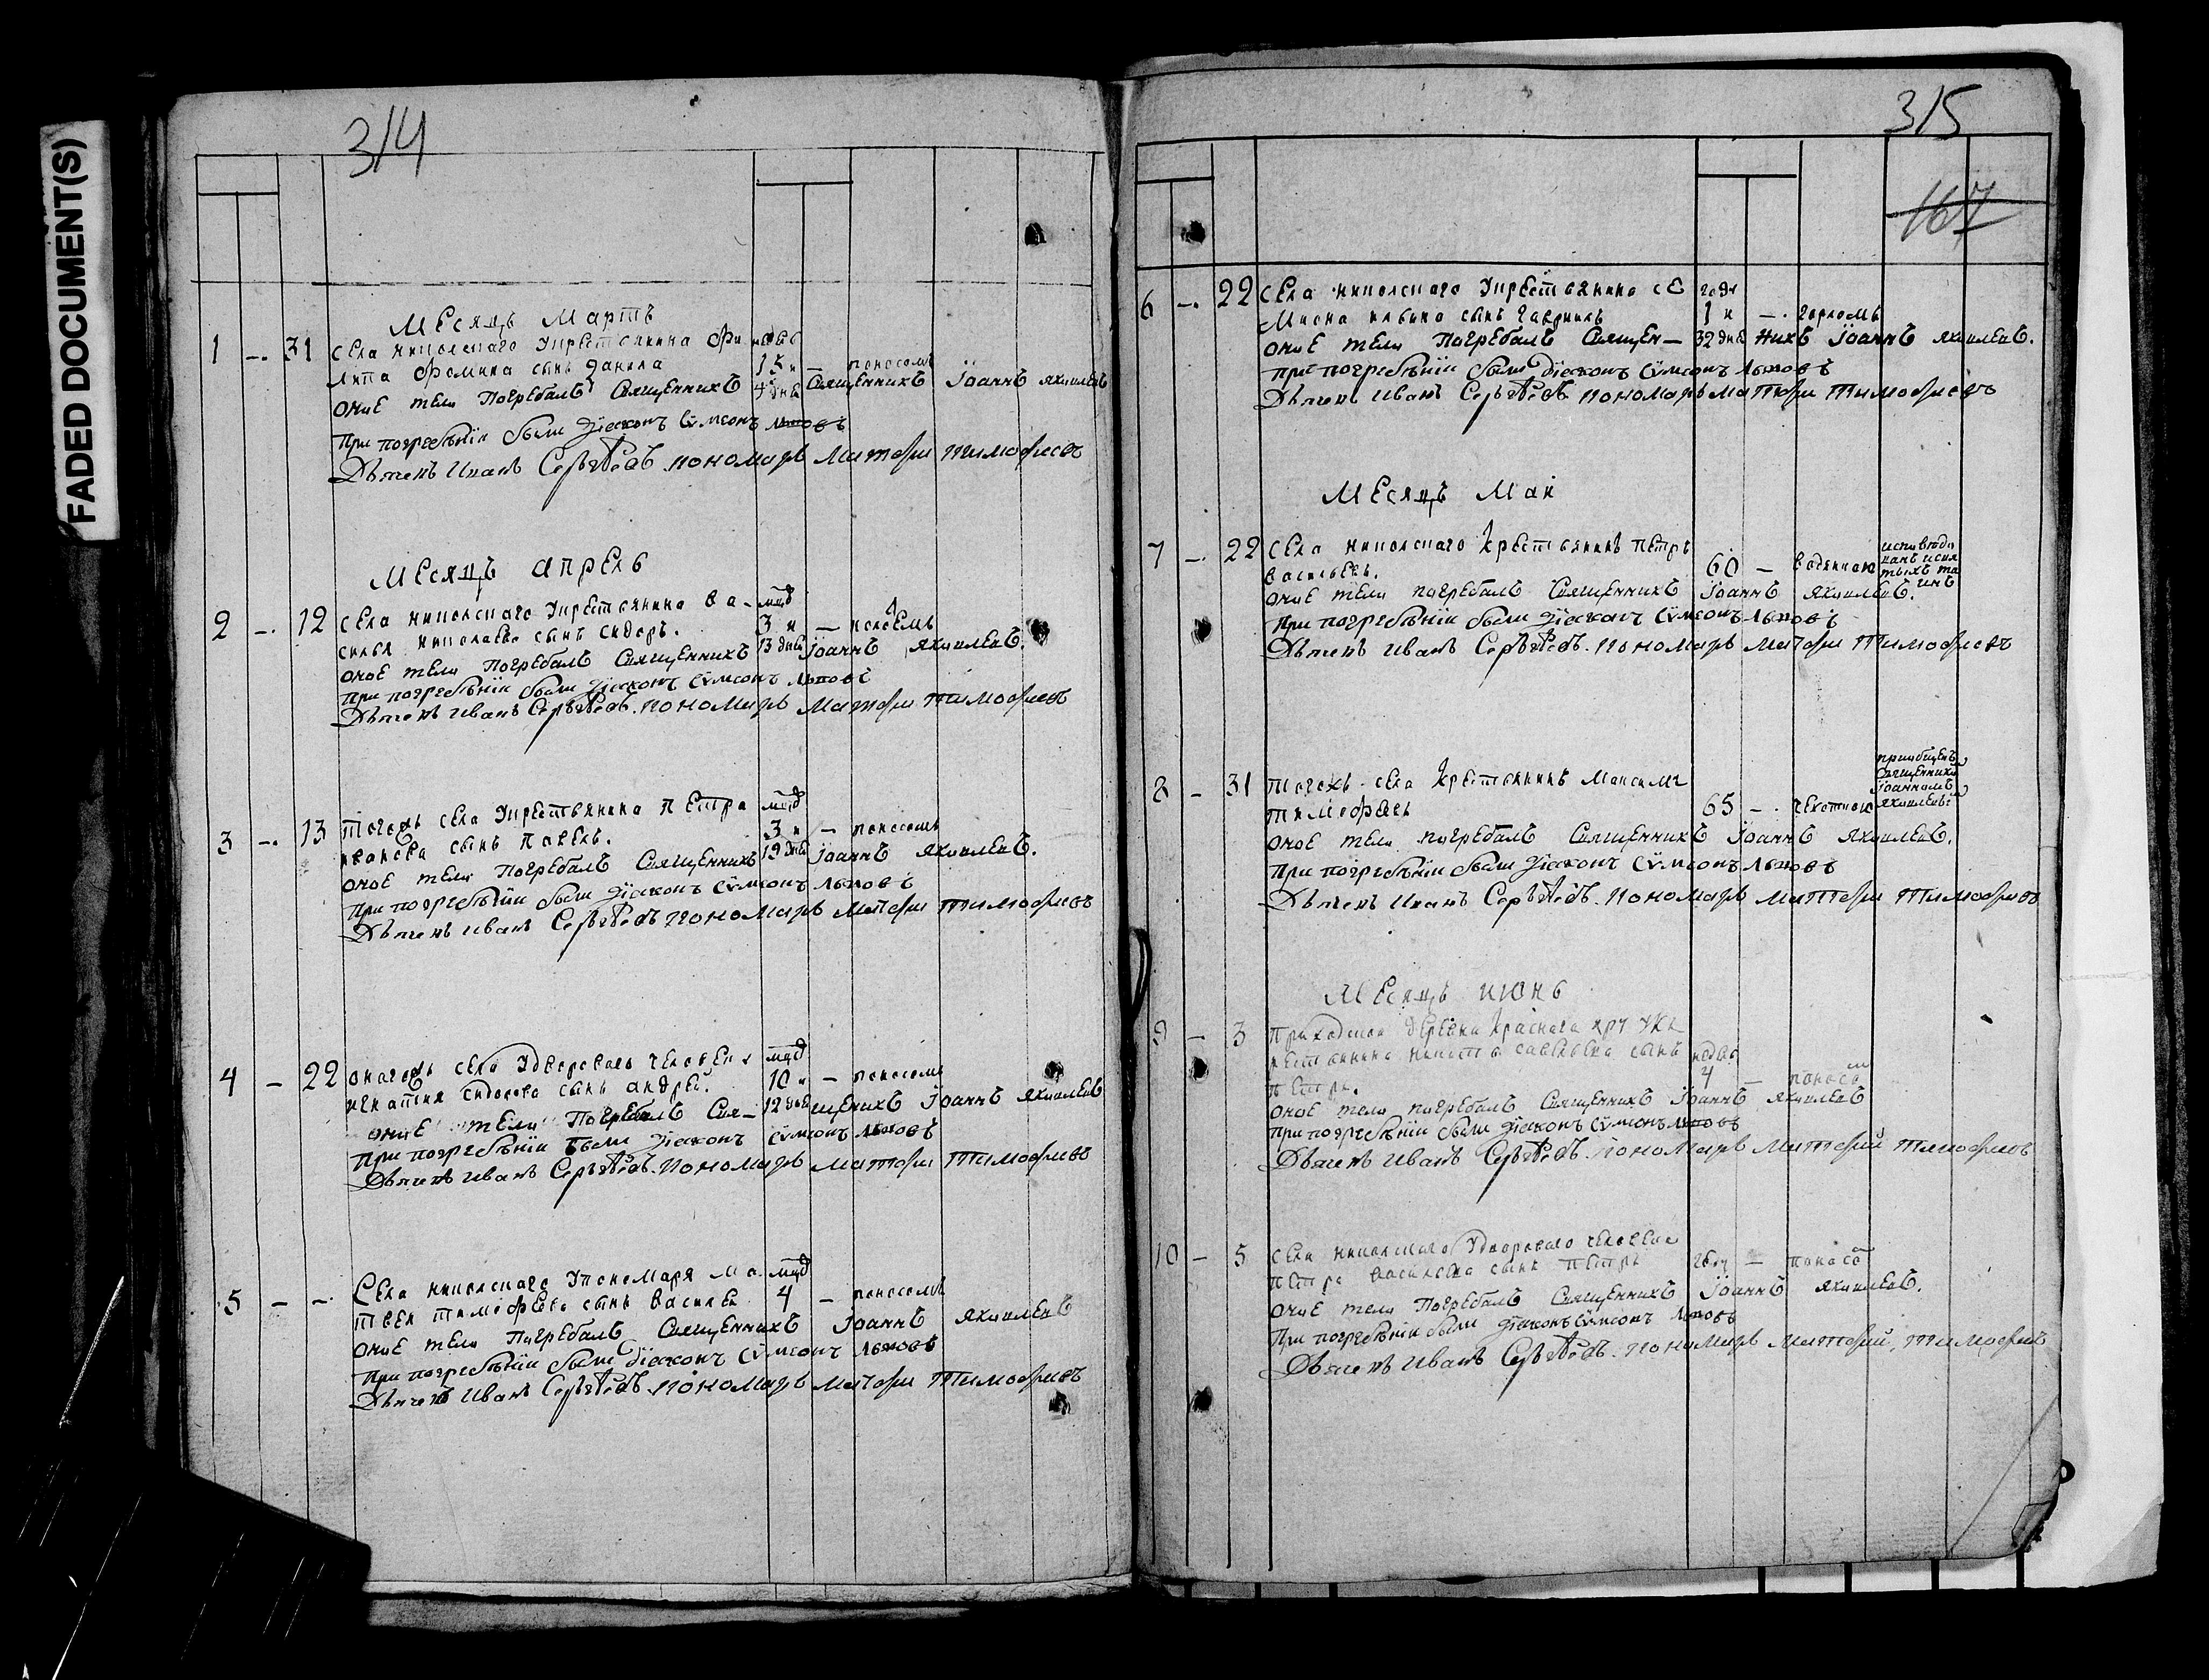 FADED DOCUMENT(S)
314
Месяцъ Мартъ
1 —. 31 села николскаго Укрестьянина Фи-
липа Фомина сынъ данила 15 и — поносомъ
оное тело Погребалъ Священникъ 4 дней Священникъ Іоаннъ Яковлевъ
При погребѣніи были діаконъ Сѵмеонъ Львовъ
Дьячекъ Иванъ Сергѣевъ пономарь Матфеи тимофеевъ
Месяцъ апрель
2 —. 12 села николскаго Укрестьянина ва- мцъ
силья николаева сынъ Сидоръ. 3 и —
оное тело Погребалъ Священникъ 13 дней Іоаннъ Яковлевъ.
При погребѣніи были діаконъ Сѵмеонъ Львовъ
Дьячекъ Иванъ Сергѣевъ. пономарь Матфеи тимофеевъ
3 —. 13 тогожъ села Укрестьянина Петра мцъ
иванова сынъ Павелъ. 3 и — поносомъ
оное тело Погребалъ Священникъ 19 дней Іоаннъ Яковлевъ.
При погребѣніи были діаконъ Сѵмеонъ Львовъ
Дьячекъ Иванъ Сергѣевъ пономарь Матфеи тимофеевъ
4 — 22 оногожъ села Удвороваго человека мцъ
игнатия Сидорова сынъ андрей. 10 и — поносомъ
оное тело Погребалъ Свя- 12 дней щеникъ Іоаннъ Яковлевъ
При погребѣніи были діаконъ Сѵмеонъ Львовъ
Дьячекъ Иванъ Сергѣевъ. Пономарь Матфеи Тимофеевъ
5 — — Села николскаго Упономаря Ма- мцъ
твея тимофеева сынъ василеи 4 — поносомъ
оное тело Погребалъ Священникъ Іоаннъ Яковлевъ
При погребѣніи были діаконъ Сѵмеонъ Львовъ
Дьячекъ Иванъ Сергѣевъ. пономарь Матфеи Тимофеевъ
315
167
6 —. 22 села николскаго Укрестьянина Се годъ
миона сынъ гавриилъ 1 и —.
оное тело Погребалъ Священ— 32 дней никъ Іоаннъ Яковлевъ.
При погребѣніи были діаконъ Сѵмеонъ Львовъ
Дьячекъ Иванъ Сергѣевъ пономарь Матфеи Тимофеевъ
Месяцъ Маи
7 —. 22 Села николскаго Крестьянинъ Петръ
васильевъ. 60 — водянкою
оное тело погребалъ Священникъ Іоаннъ Яковлевъ.
При погребѣніи были діаконъ Сѵмеонъ Львовъ
Дьячекъ Иванъ Сергѣевъ. Пономарь Матфеи Тимофеевъ
8 — 31 тогожъ села Крестьянинъ Максимъ
тимофеевъ 65 —. чехоткою
приобщенъ
священникомъ
Іоанномъ
Яковлевымъ
оное тело погребалъ Священникъ Іоаннъ Яковлевъ.
При погребѣніи были діаконъ Сѵмеонъ Львовъ
Дьячекъ Иванъ Сергѣевъ. Пономарь Матфеи Тимофеевъ
Месяцъ июнь
9 — 3 Приходской деревни Краснаго
савельева сынъ
Петръ. 4 — поносо
оное тело погребалъ Священникъ Іоаннъ Яковлевъ
При погребѣніи были діаконъ Сѵмеонъ Львовъ
Дьячекъ Иванъ Сергѣевъ. пономарь Матфей Тимофеевъ
10 — 5 села николскаго Удвороваго человека
Петра васильева сынъ Петръ — поносо
оное тело Погребалъ Священникъ Іоаннъ Яковлевъ.
При погребѣніи были діаконъ Сѵмеонъ Львовъ
Дьячекъ Иванъ Сергѣевъ. пономарь Матфей, Тимофеевъ